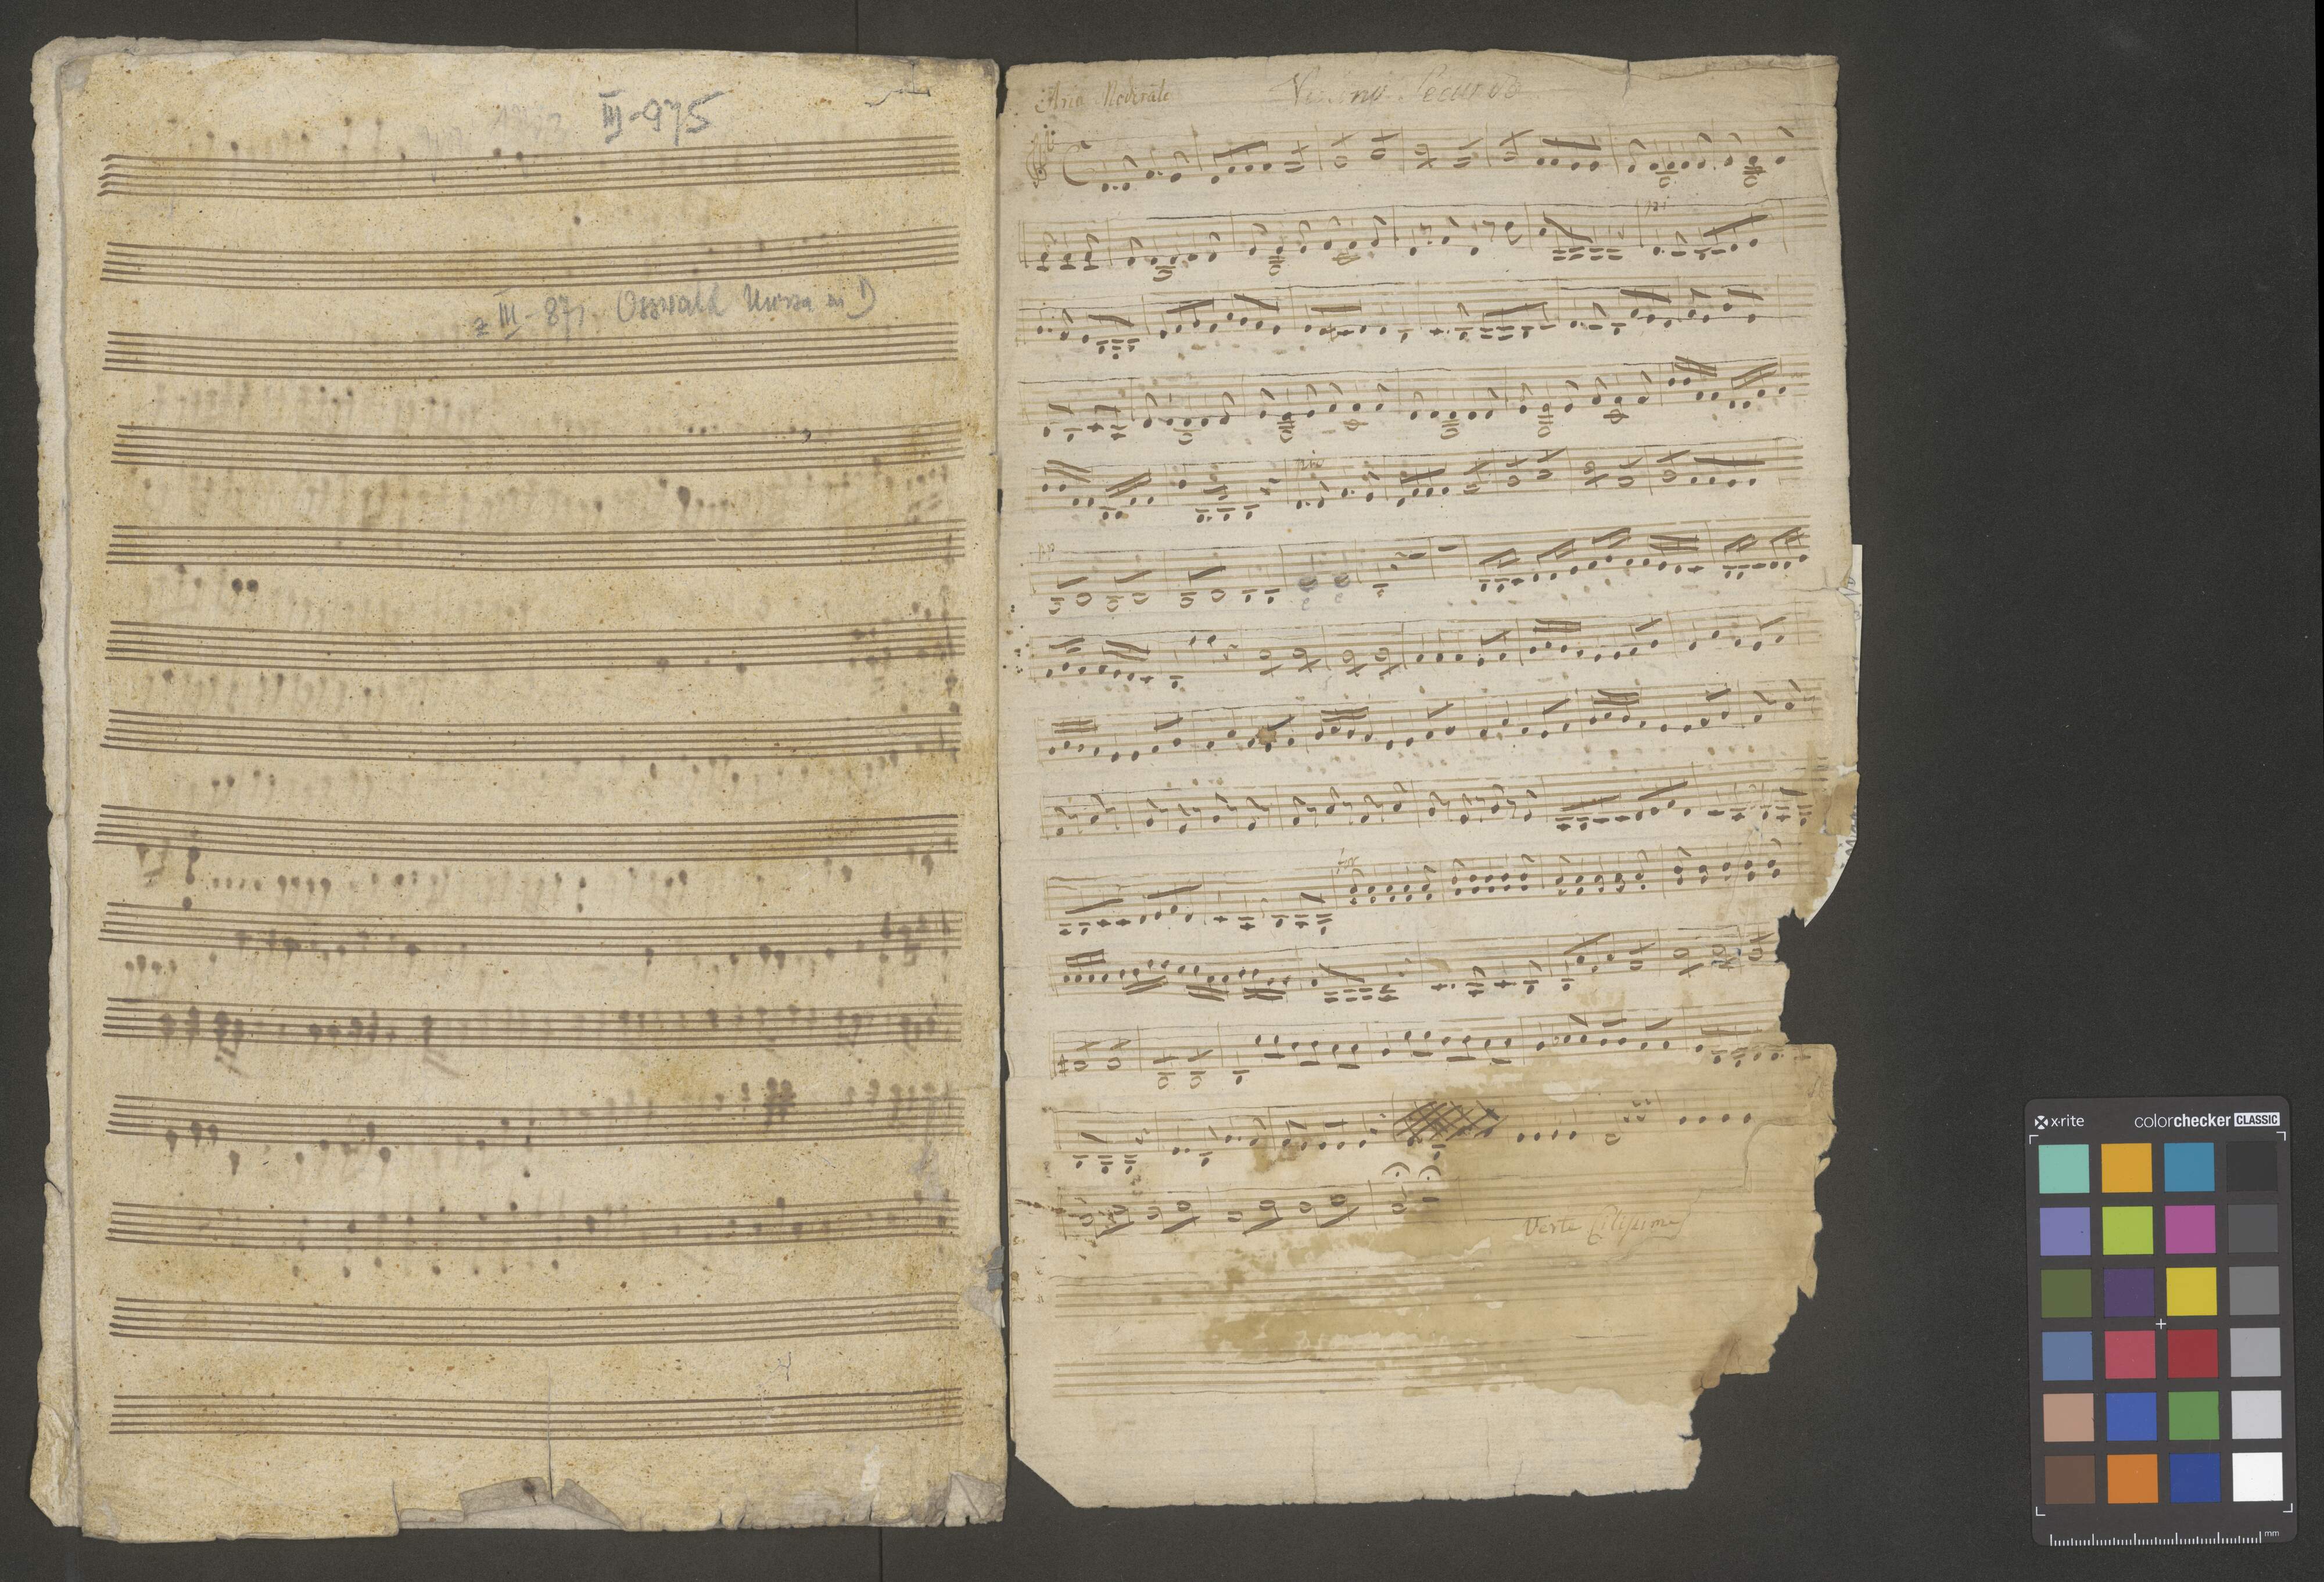 III-975
z III-871. Osswald Missa in D
Aria Moderate
Violino Secundo
pi
pia
pp
for
Verte Citissime
x·rite
colorchecker CLASSIC
mm